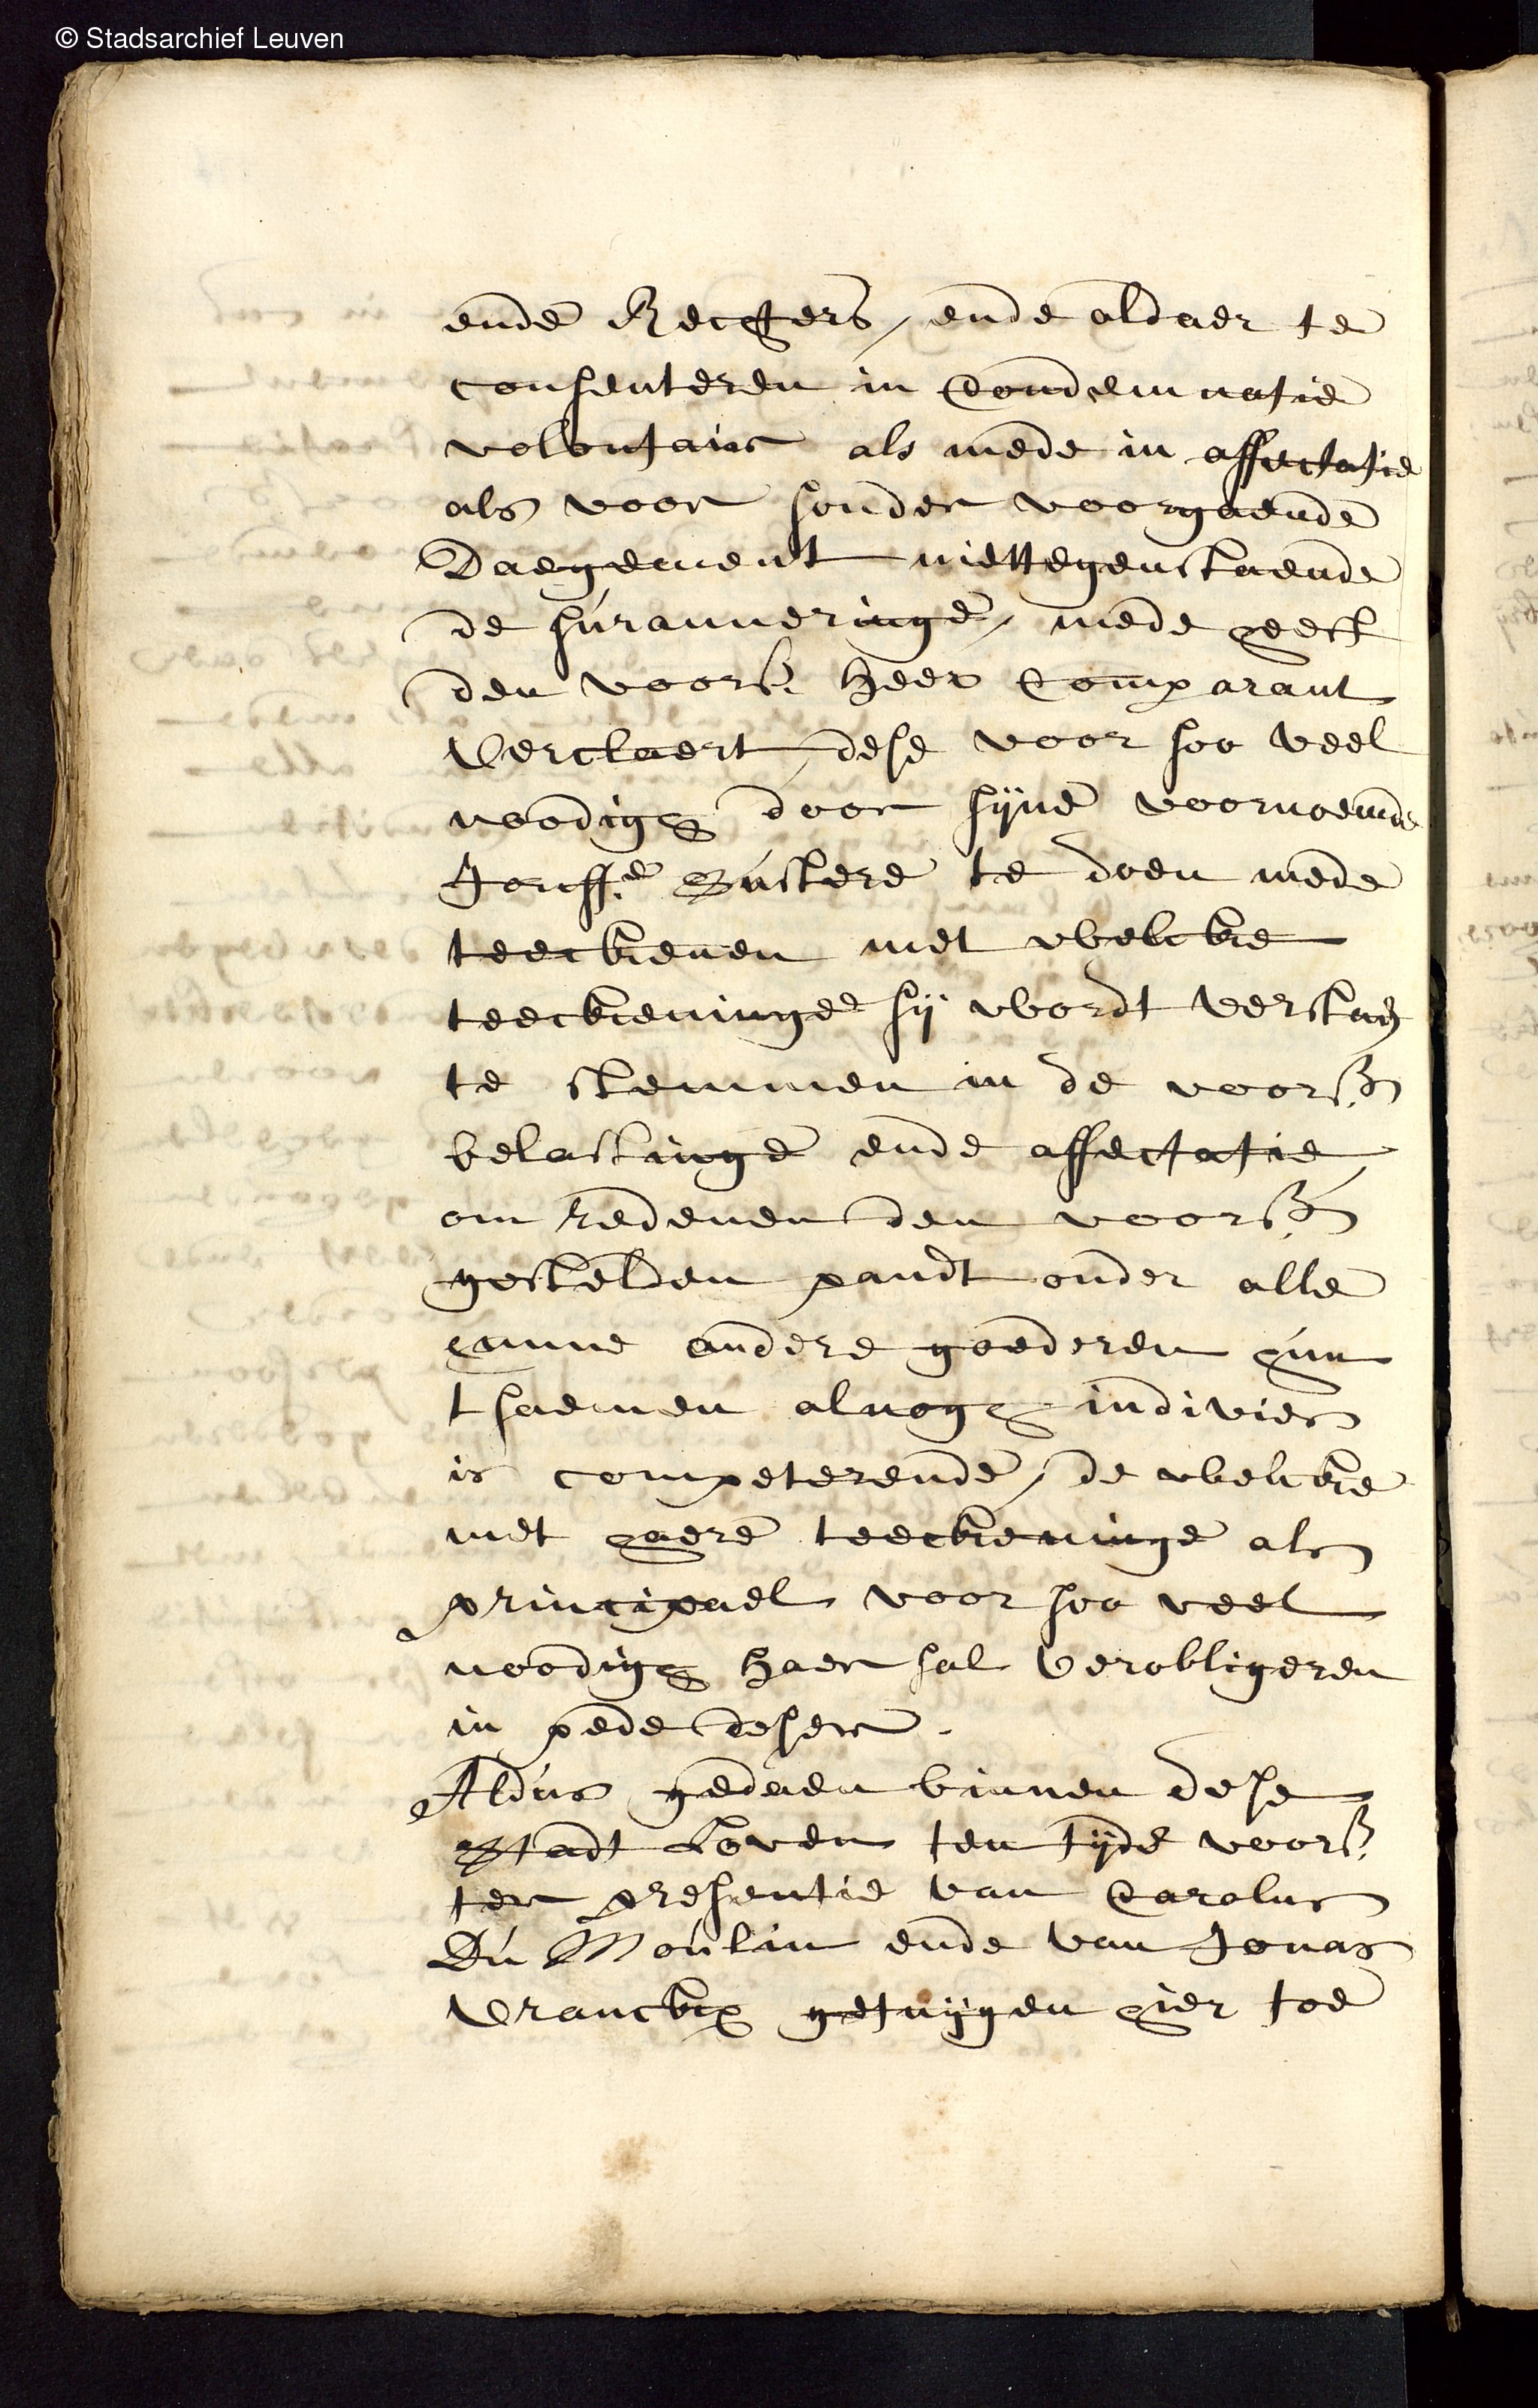 © Stadsarchief Leuven
ende Rechters, ende aldaer te
consenteren in Condemnatie
volontair als mede in affectatie
als voor sonder voorgaende
Daegement niettegenstaende
de suranneringe, mede heeft
den voors. heer Comparant
Verclaert dese voor soo veel
noodigh door sijne voornoemde
Jouffe. sustere te doen mede
teeckenen met welcke
teeckeninge sij wordt verstaen
te stemmen in de voors.
belastinge ende affectatie
om redenen den voors.
gestelden pandt onder alle
andere goederen hun
t saemen alnogh indivies
is competerende, de welcke
met haere teeckeninge als
principael voor soo veel
noodigh haer sal Verobligeren
in pede deser.
Aldus gedaen binnen dese
Stadt Loven ten tijde voors.
ter presentie van Carolus
Du Moulin ende van Jonas
Vranckx getuijgen hier toe